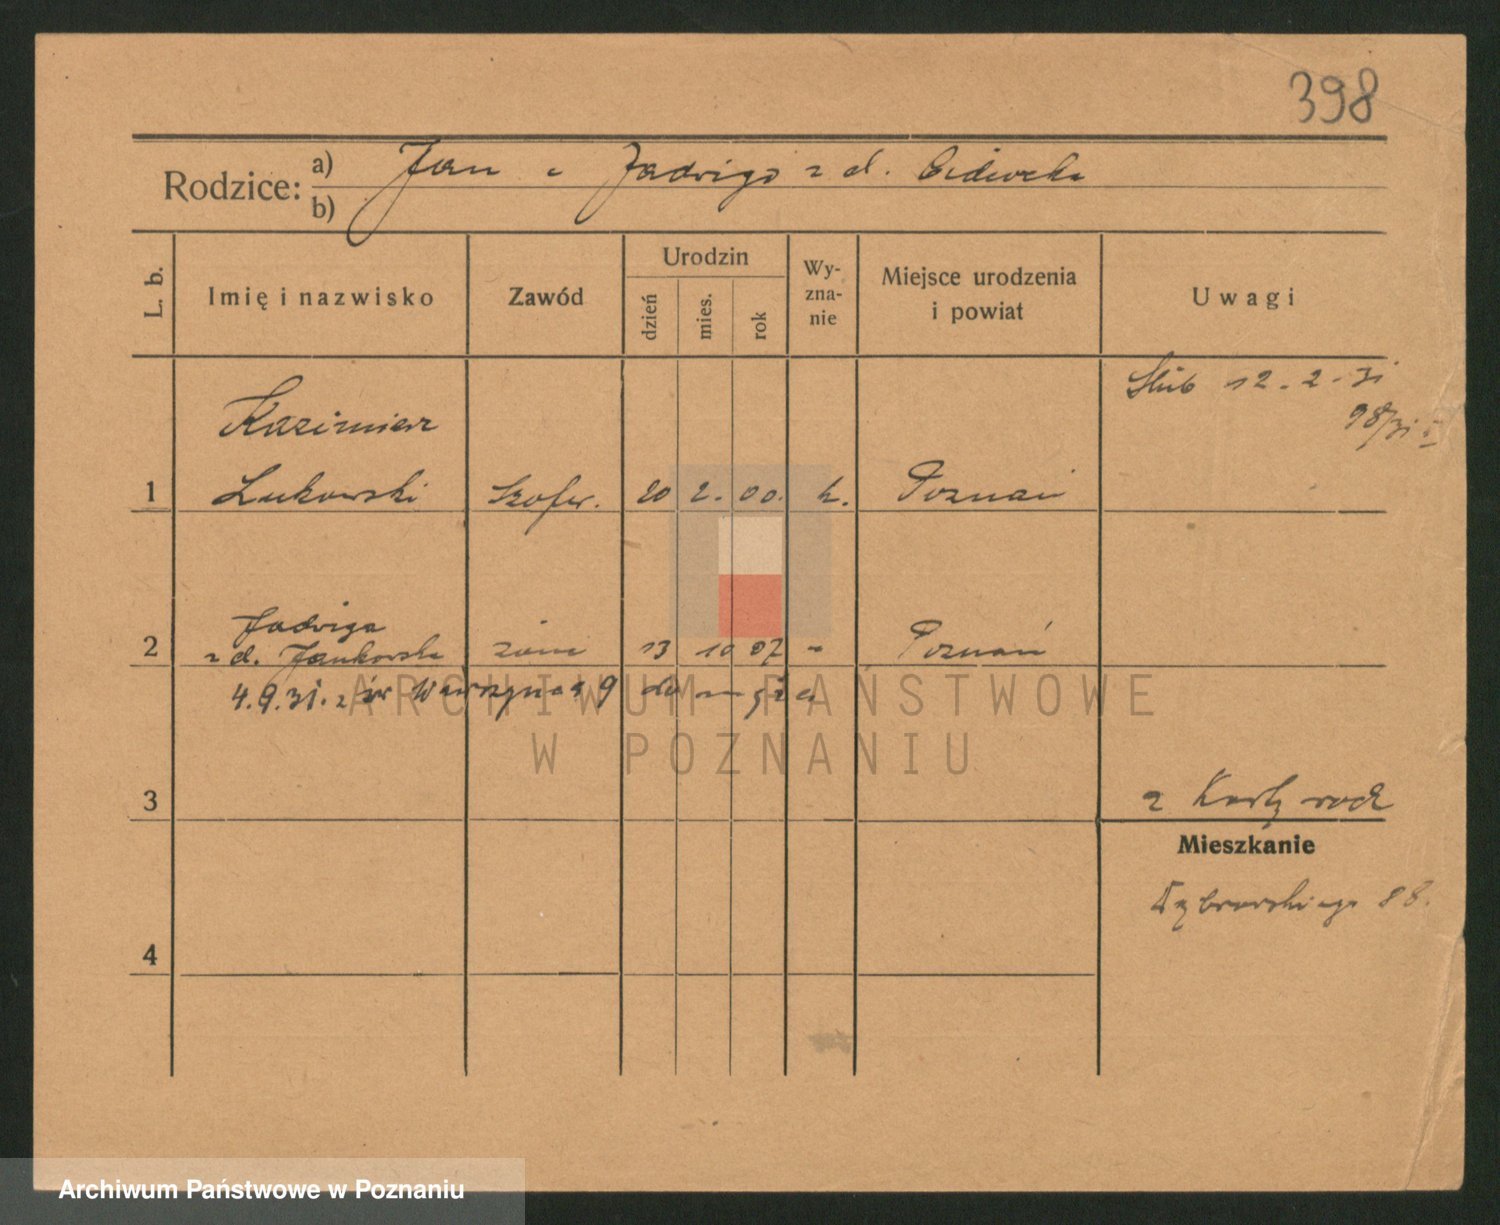 398
Rodzice: a) Jan i Jadwiga z d.
b)
L. b.
Imię i nazwisko
Zawód
Urodzin
dzień
mies.
rok
Wy-
zna-
nie
Miejsce urodzenia
i powiat
Uwagi
Ślub 12.-2-31
98/31
Kazimierz
1 Łukowski szofer. 20 2. 00. k. Poznań
Jadwiga
2 z d. Jankowska żona 13 10 07 - Poznań
4.9.31. z św Wawrzyńca 9 do męża
ARCHIWUM PAŃSTWOWE
W POZNANIU
3
z Karty rodz
Mieszkanie
Dąbrowskiego 88.
4
Archiwum Państwowe w Poznaniu